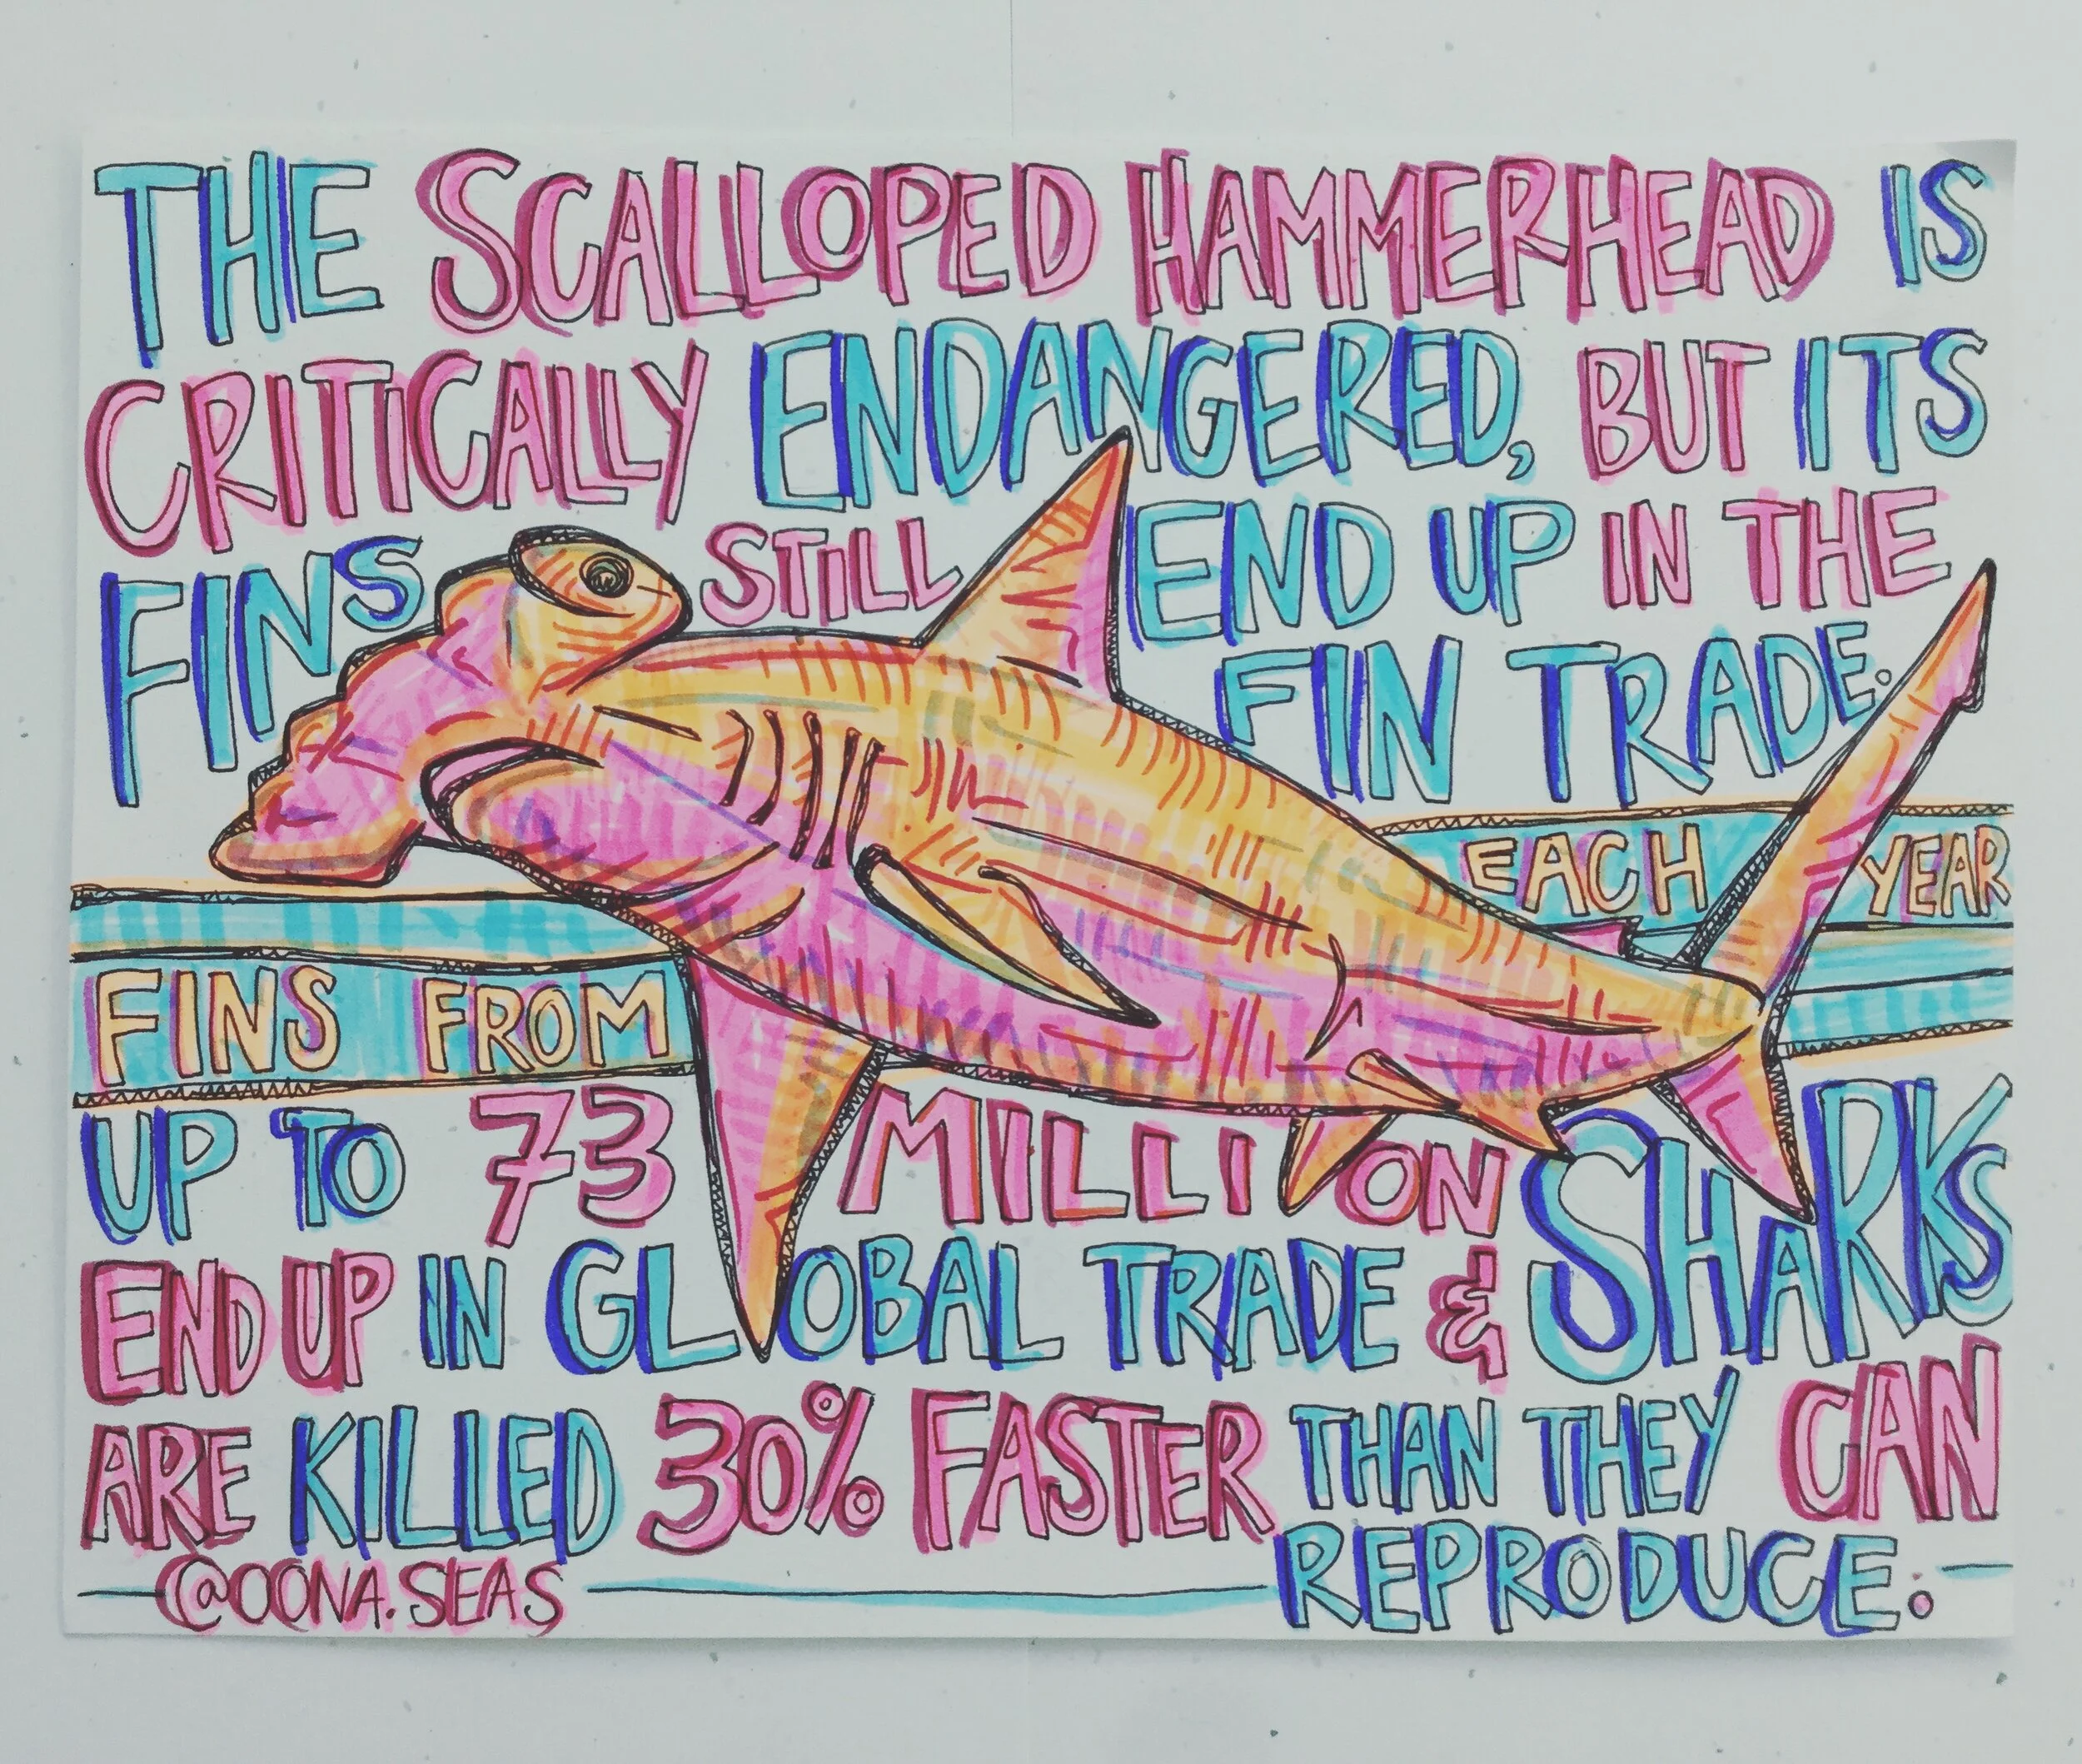 THE SCALLOPED HAMMERHEAD IS
CRITICALLY ENDANGERED, BUT ITS
FINS STILL END UP IN THE
FIN TRADE.
EACH YEAR
FINS FROM
UP TO 73 MILLION SHARKS
END UP IN GLOBAL TRADE &
ARE KILLED 30% FASTER THAN THEY CAN
REPRODUCE.
@OONA.SEAS